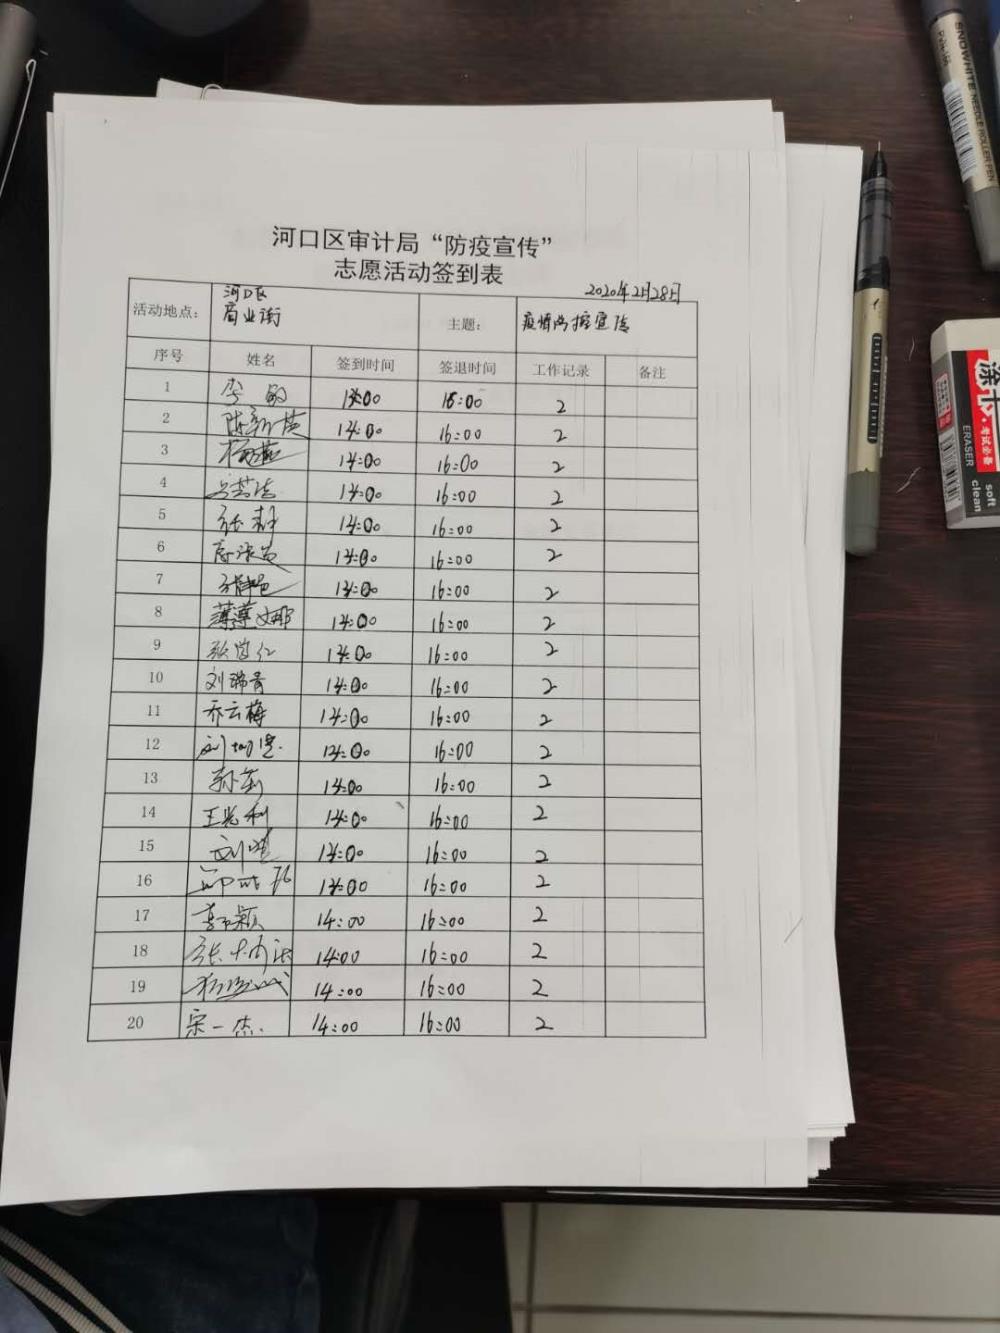 SNOWHITE NEEDLE ROLLER PEN
涂卡
考试必备
ERASER
soft
clean
河口区审计局“防疫宣传”
志愿活动签到表
2020年2月28日
活动地点： 河口区 商业街 主题： 疫情防控宣传
序号 姓名 签到时间 签退时间 工作记录 备注
1 李敏 14:00 16:00 2
2 14:00 16:00 2
3 杨燕 14:00 16:00 2
4 14:00 16:00 2
5 14:00 16:00 2
6 14:00 16:00 2
7 14:00 16:00 2
8 14:00 16:00 2
9 14:00 16:00 2
10 刘瑞青 14:00 16:00 2
11 乔云梅 14:00 16:00 2
12 14:00 16:00 2
13 14:00 16:00 2
14 14:00 16:00 2
15 14:00 16:00 2
16 14:00 16:00 2
17 14:00 16:00 2
18 14:00 16:00 2
19 14:00 16:00 2
20 宋一杰 14:00 16:00 2